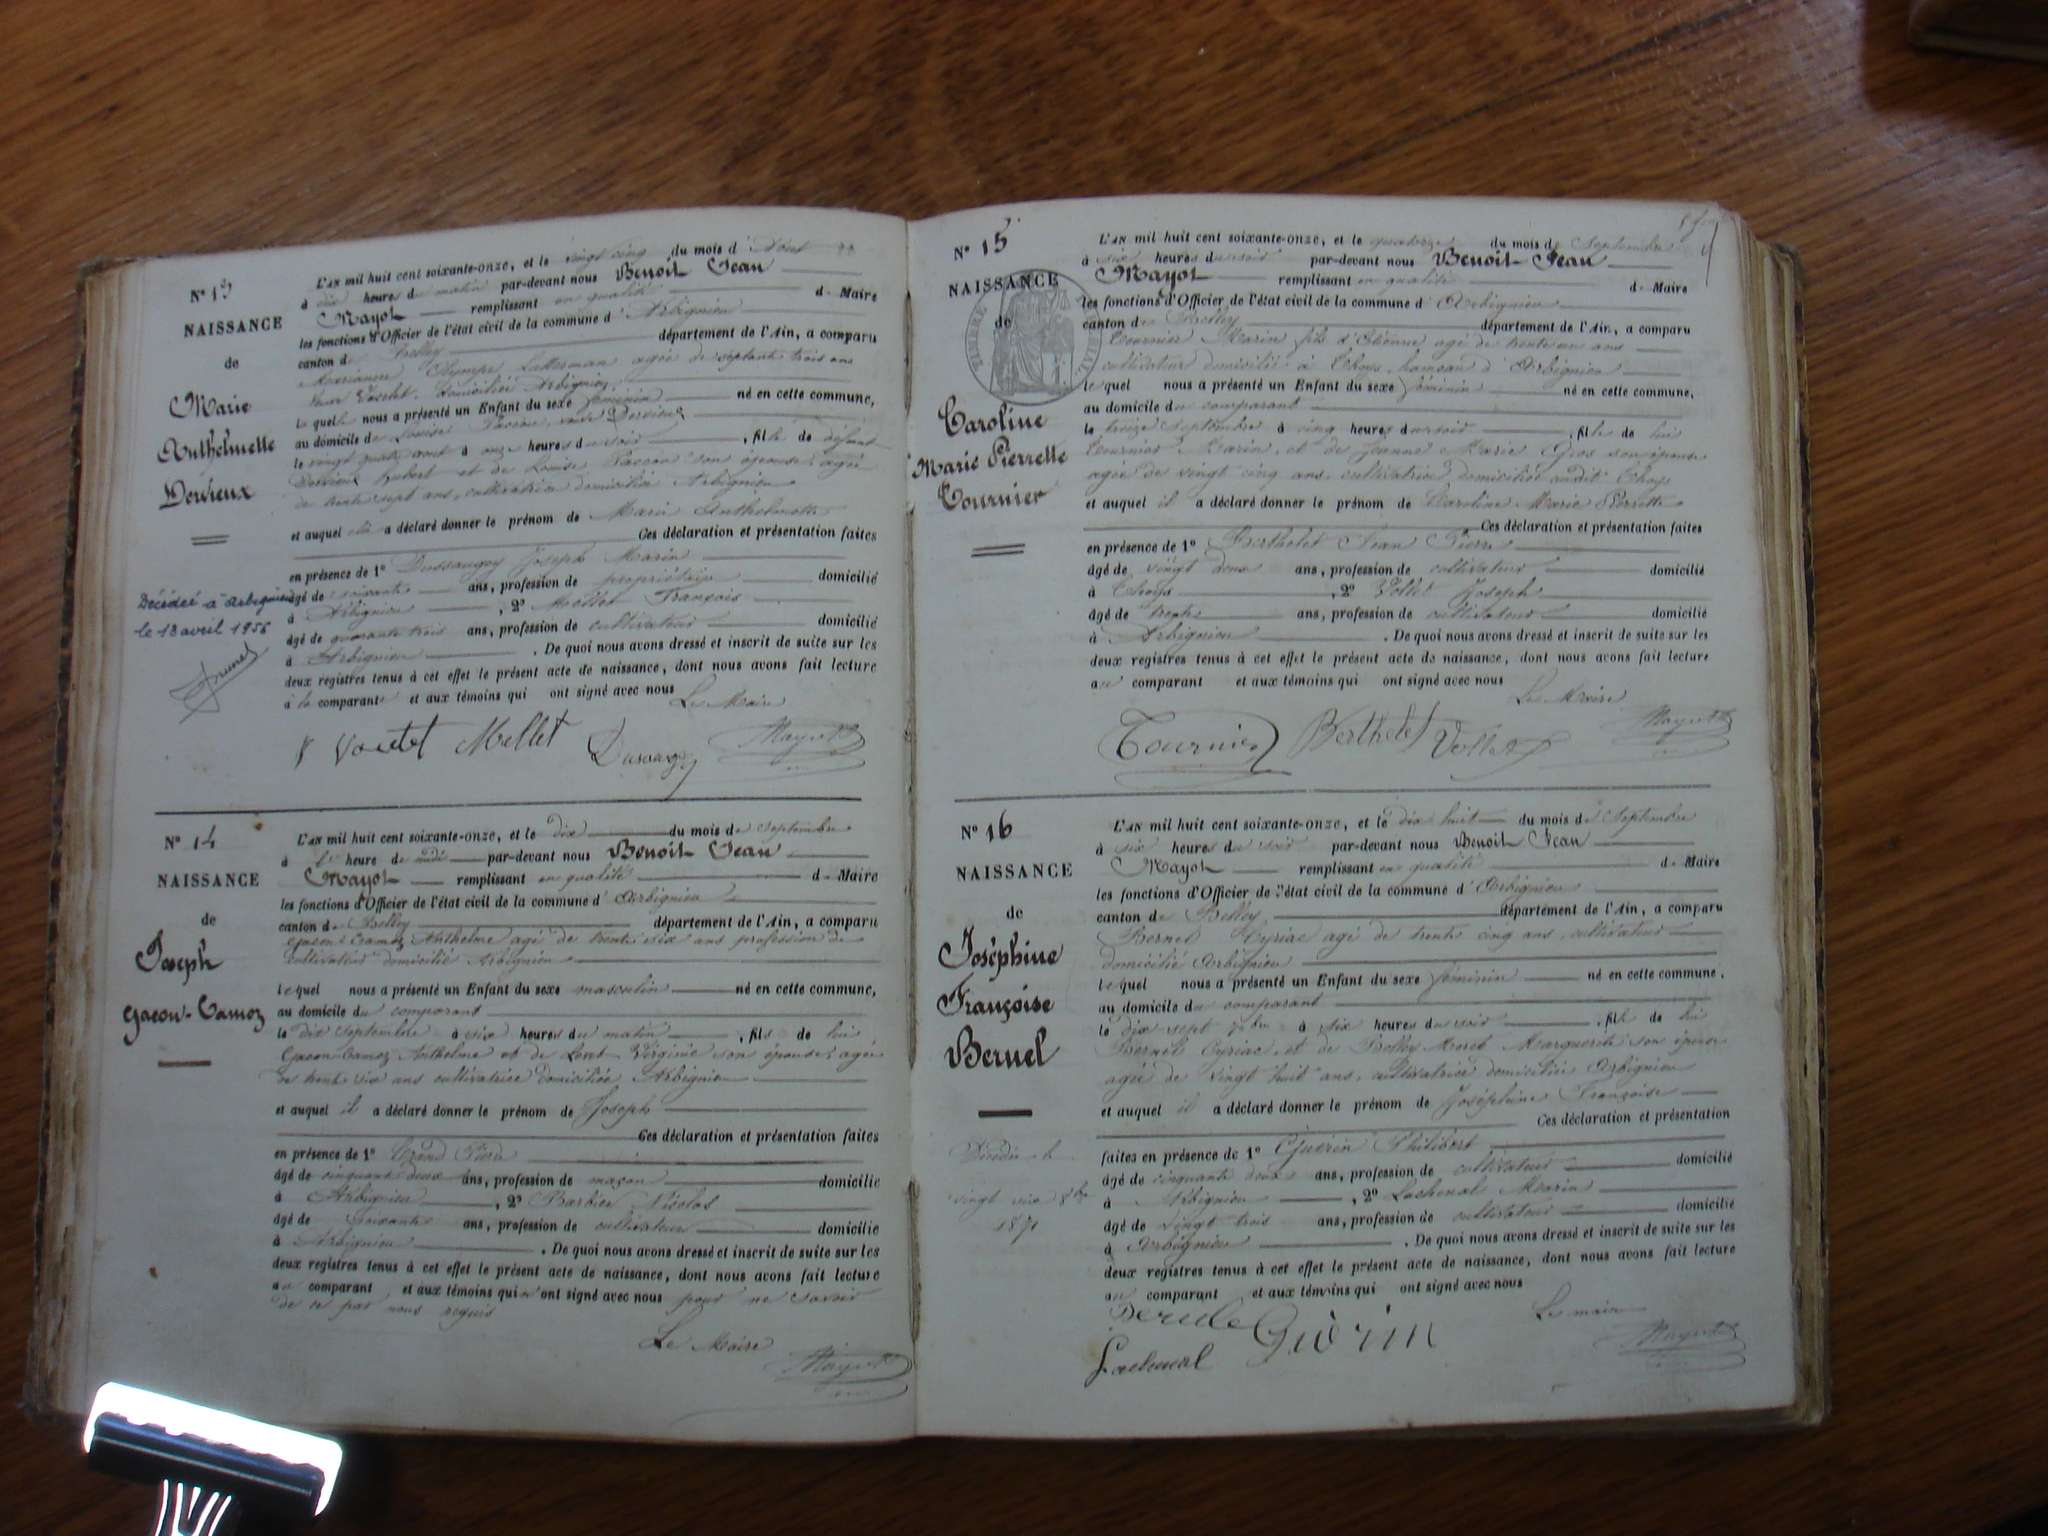 N° 13
NAISSANCE
de
Marie
Anthelmette
Dervieux
Décédée à Arbignieu
le 18 avril 1956
L'AN mil huit cent soixante-onze, et le vingt cinq du mois d'Aout
à dix heures du matin par-devant nous Benoit Jean
Mayot remplissant en qualité de Maire
les fonctions d'Officier de l'état civil de la commune d'Arbignieu
canton de Belley département de l'Ain, a comparu
agée de septante trois ans
Veuve Voutet Domiciliée Arbignieu
laquelle nous a présenté un Enfant du sexe féminin né en cette commune,
au domicile de Louise veuve Dervieux
le vingt quatre aout à onze heures du soir, fille de défunt
Dervieux Hubert et de Louise son épouse, agée
de trente sept ans, cultivatrice domiciliée Arbignieu
et auquel elle a déclaré donner le prénom de Marie Anthelmette
Ces déclaration et présentation faites
en présence de 1° Dussaugey Joseph Marin
âgé de soixante ans, profession de propriétaire domicilié
à Arbignieu, 2° Mellet François
âgé de quarante trois ans, profession de cultivateur domicilié
à Arbignieu. De quoi nous avons dressé et inscrit de suite sur les
deux registres tenus à cet effet le présent acte de naissance, dont nous avons fait lecture
à la comparante et aux témoins qui ont signé avec nous
Le Maire
Voutet Mellet Dusaugey Mayot
N° 14
NAISSANCE
de
Joseph
Gacon-Camoz
L'AN mil huit cent soixante-onze, et le dix du mois de Septembre
à heure de midi par-devant nous Benoit Jean
Mayot remplissant en qualité de Maire
les fonctions d'Officier de l'état civil de la commune d'Arbignieu
canton de Belley département de l'Ain, a comparu
Gacon-Camoz Anthelme agé de trente six ans profession de
cultivateur domicilié Arbignieu
lequel nous a présenté un Enfant du sexe masculin né en cette commune,
au domicile du comparant
le dix Septembre à six heures du matin, fils de lui
Gacon Camoz Anthelme et de Virginie son épouse, agée
de trente six ans cultivatrice domiciliée Arbignieu
et auquel il a déclaré donner le prénom de Joseph
Ces déclaration et présentation faites
en présence de 1°
âgé de cinquante deux ans, profession de maçon domicilié
à Arbignieu, 2° Barbier Nicolas
âgé de Soixante ans, profession de cultivateur domicilié
à Arbignieu. De quoi nous avons dressé et inscrit de suite sur les
deux registres tenus à cet effet le présent acte de naissance, dont nous avons fait lecture
au comparant et aux témoins qui n'ont signé avec nous pour ne savoir
de ce par nous requis
Le Maire
Mayot
N° 15
NAISSANCE
de
TIMBRE
Caroline
Marie Pierrette
Tournier
L'AN mil huit cent soixante-onze, et le quatorze du mois de Septembre
à six heures du soir par-devant nous Benoit Jean
Mayot remplissant en qualité de Maire
les fonctions d'Officier de l'état civil de la commune d'Arbignieu
canton de Belley département de l'Ain, a comparu
Tournier Marin fils d'Etienne agé de trente un ans
cultivateur domicilié à Thoys hameau d'Arbignieu
lequel nous a présenté un Enfant du sexe féminin né en cette commune,
au domicile du comparant
le treize Septembre à cinq heures du soir, fille de lui
Tournier Marin, et de Jeanne Marie Gros son épouse
agée de vingt cinq ans, cultivatrice domiciliée audit Thoys
et auquel il a déclaré donner le prénom de Caroline Marie Pierrette
Ces déclaration et présentation faites
en présence de 1° Berthelet Jean Pierre
âgé de vingt deux ans, profession de cultivateur domicilié
à Thoys, 2° Vollet Joseph
âgé de trente ans, profession de cultivateur domicilié
à Arbignieu. De quoi nous avons dressé et inscrit de suite sur les
deux registres tenus à cet effet le présent acte de naissance, dont nous avons fait lecture
au comparant et aux témoins qui ont signé avec nous
Le Maire
Tournier Berthelet Vollet Mayot
N° 16
NAISSANCE
de
Joséphine
Françoise
Bernel
Décédée le
vingt six 8bre
1871
L'AN mil huit cent soixante-onze, et le dix huit du mois de Septembre
à six heures du soir par-devant nous Benoit Jean
Mayot remplissant en qualité de Maire
les fonctions d'Officier de l'état civil de la commune d'Arbignieu
canton de Belley département de l'Ain, a comparu
Bernel Cyriac agé de trente cinq ans, cultivateur
domicilié Arbignieu
lequel nous a présenté un Enfant du sexe féminin né en cette commune,
au domicile du comparant
le dix sept 7bre à six heures du soir, fille de lui
Bernel Cyriac, et de Marguerite son épouse
agée de vingt huit ans, cultivatrice domiciliée Arbignieu
et auquel il a déclaré donner le prénom de Joséphine Françoise
Ces déclaration et présentation
faites en présence de 1° Guérin Philibert
âgé de cinquante deux ans, profession de cultivateur domicilié
à Arbignieu, 2° Lachenal Marin
âgé de vingt trois ans, profession de cultivateur domicilié
à Arbignieu. De quoi nous avons dressé et inscrit de suite sur les
deux registres tenus à cet effet le présent acte de naissance, dont nous avons fait lecture
au comparant et aux témoins qui ont signé avec nous
Le maire
Guérin Mayot
Lachenal